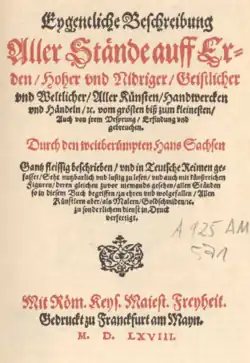 Eygentliche Beschreibung
Aller Stände auff Er-
den / Hoher vnd Nidriger / Geistlicher
vnd Weltlicher / Aller Künsten / Handwercken
vnd Händeln / ꝛc. vom grösten biß zum kleinesten /
Auch von jrem Vrsprung / Erfindung vnd
gebreuchen.
Durch den weitberümpten Hans Sachsen
Gantz fleissig beschrieben / vnd in Teutsche Reimen ge-
fasset / Sehr nutzbarlich vnd lustig zu lesen / vnd auch mit künstreichen
Figuren / deren gleichen zuvor niemands gesehen / allen Ständen
so in diesem Buch begriffen / zu ehren vnd wolgefallen / Allen
Künstlern aber / als Malern / Goldschmiden / ꝛc.
zu sonderlichem dienst in Druck
verfertigt.
A 125 AM
571
Mit Röm. Keys. Maiest. Freyheit.
Gedruckt zu Franckfurt am Mayn.
M. D. LXVIII.